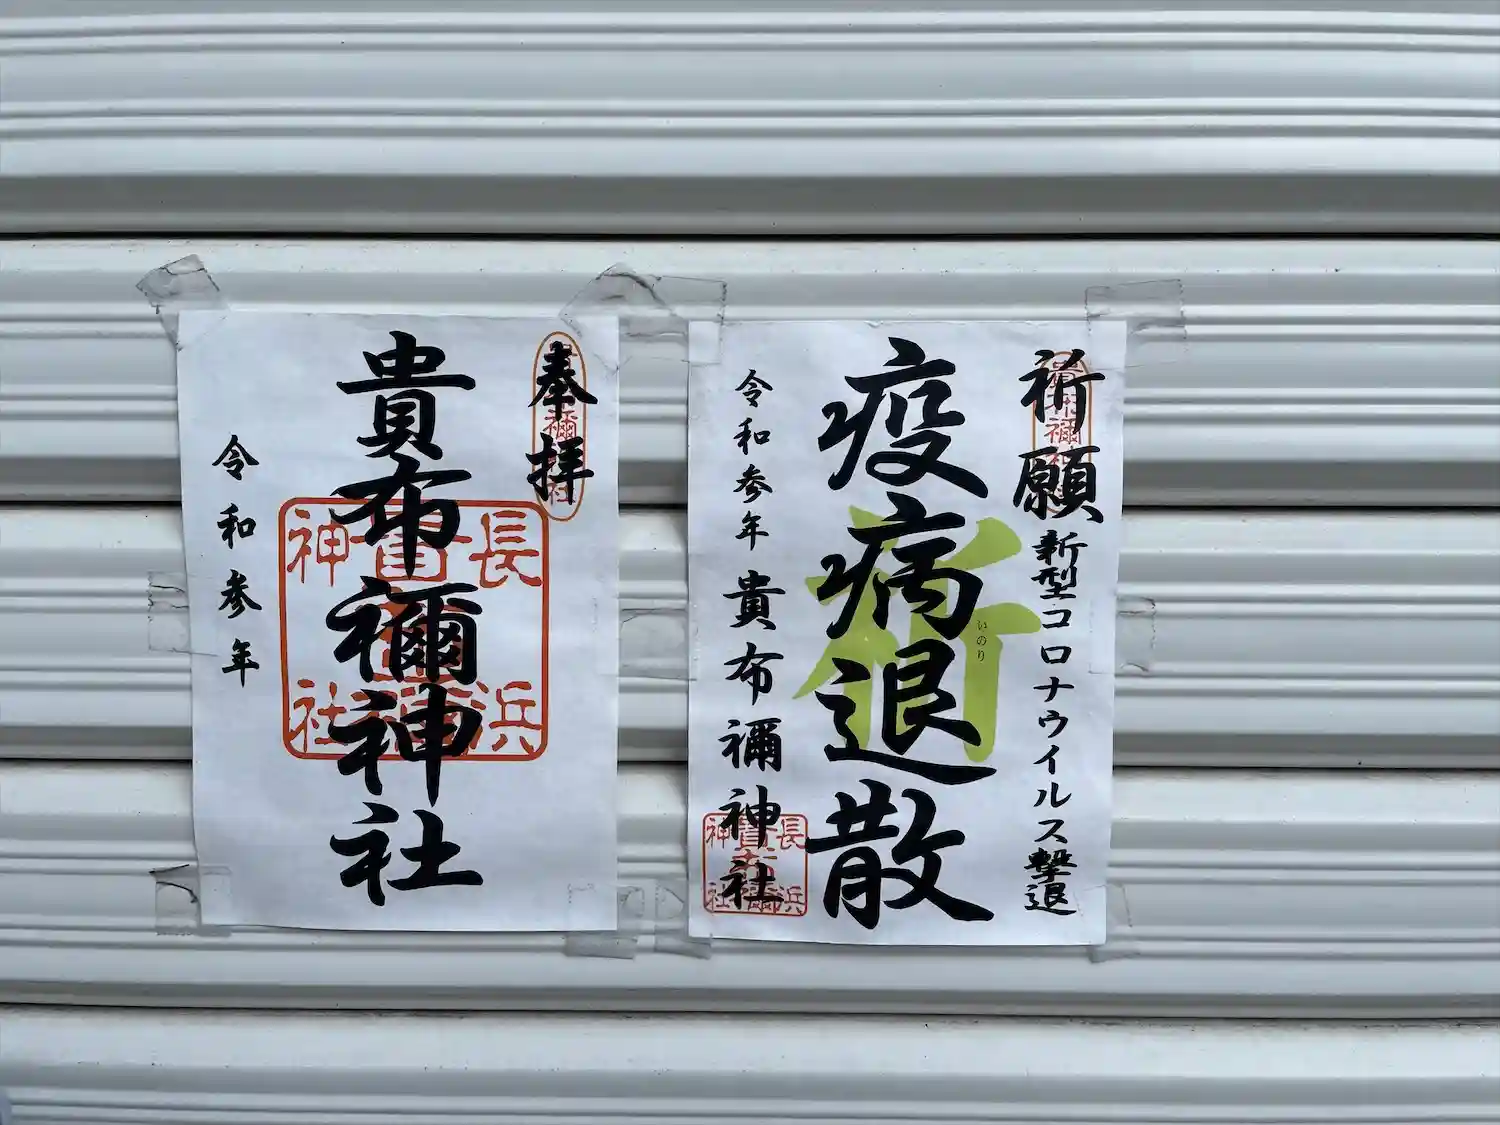 奉拝
貴布禰神社
長浜
貴布禰
神社
令和参年
祈願
新型コロナウイルス撃退
疫病退散
祈
いのり
令和参年
貴布禰神社
長浜
貴布禰
神社